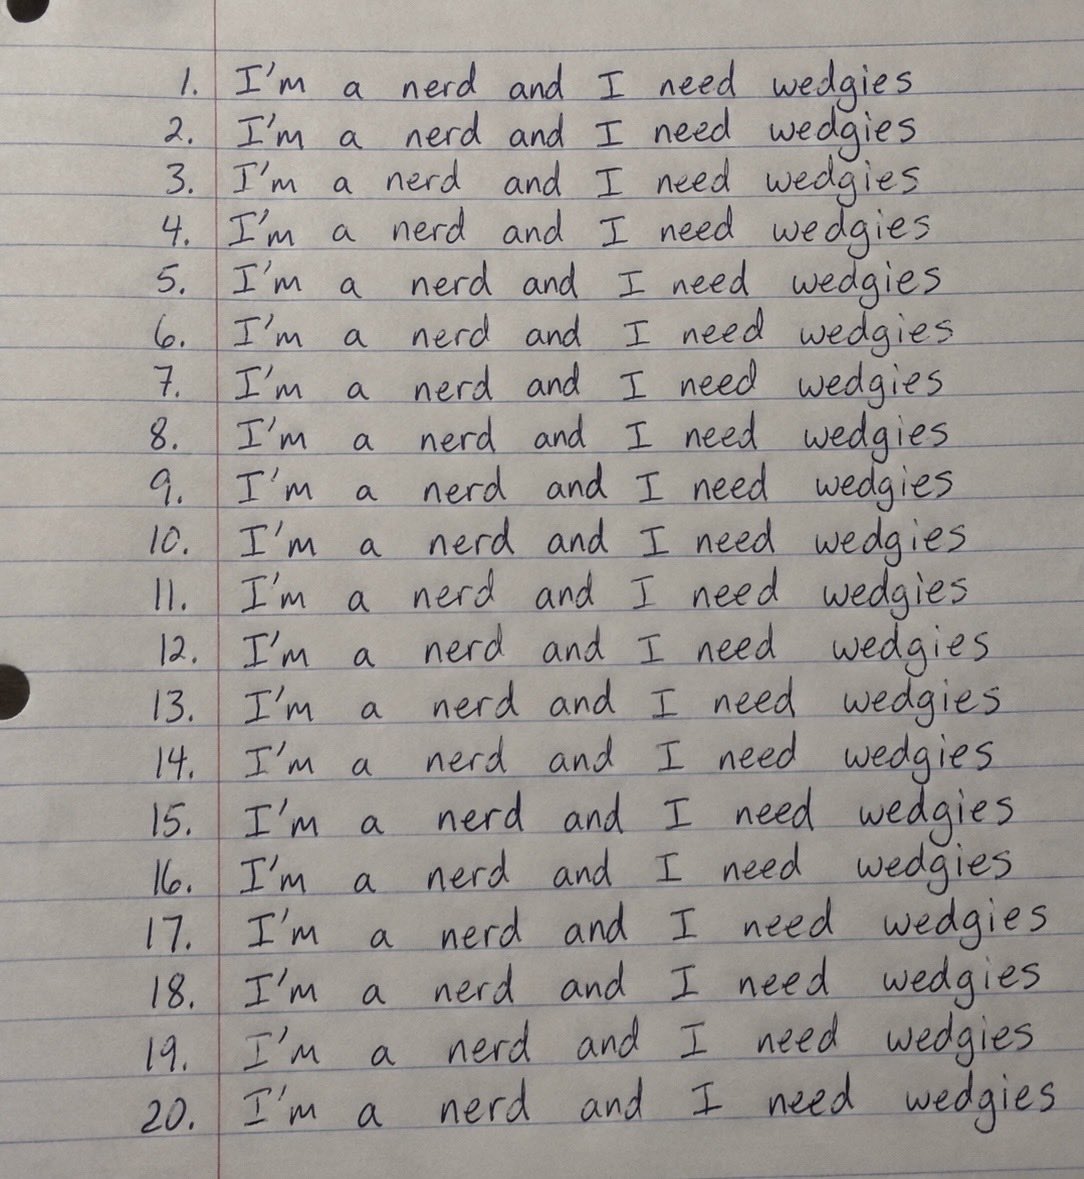 1. I'm a nerd and I need wedgies
2. I'm a nerd and I need wedgies
3. I'm a nerd and I need wedgies
4. I'm a nerd and I need wedgies
5. I'm a nerd and I need wedgies
6. I'm a nerd and I need wedgies
7. I'm a nerd and I need wedgies
8. I'm a nerd and I need wedgies
9. I'm a nerd and I need wedgies
10. I'm a nerd and I need wedgies
11. I'm a nerd and I need wedgies
12. I'm a nerd and I need wedgies
13. I'm a nerd and I need wedgies
14. I'm a nerd and I need wedgies
15. I'm a nerd and I need wedgies
16. I'm a nerd and I need wedgies
17. I'm a nerd and I need wedgies
18. I'm a nerd and I need wedgies
19. I'm a nerd and I need wedgies
20. I'm a nerd and I need wedgies